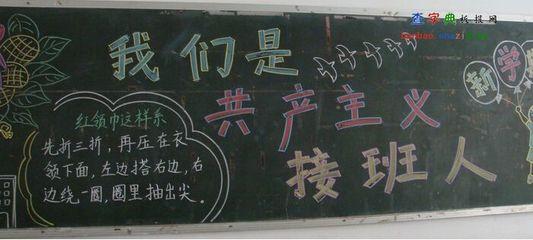 查字典板报网
我们是
共产主义
接班人
红领巾这样系
先折三折，再压在衣
领下面，左边搭右边，右
边绕一圈，圈里抽出尖。
新学